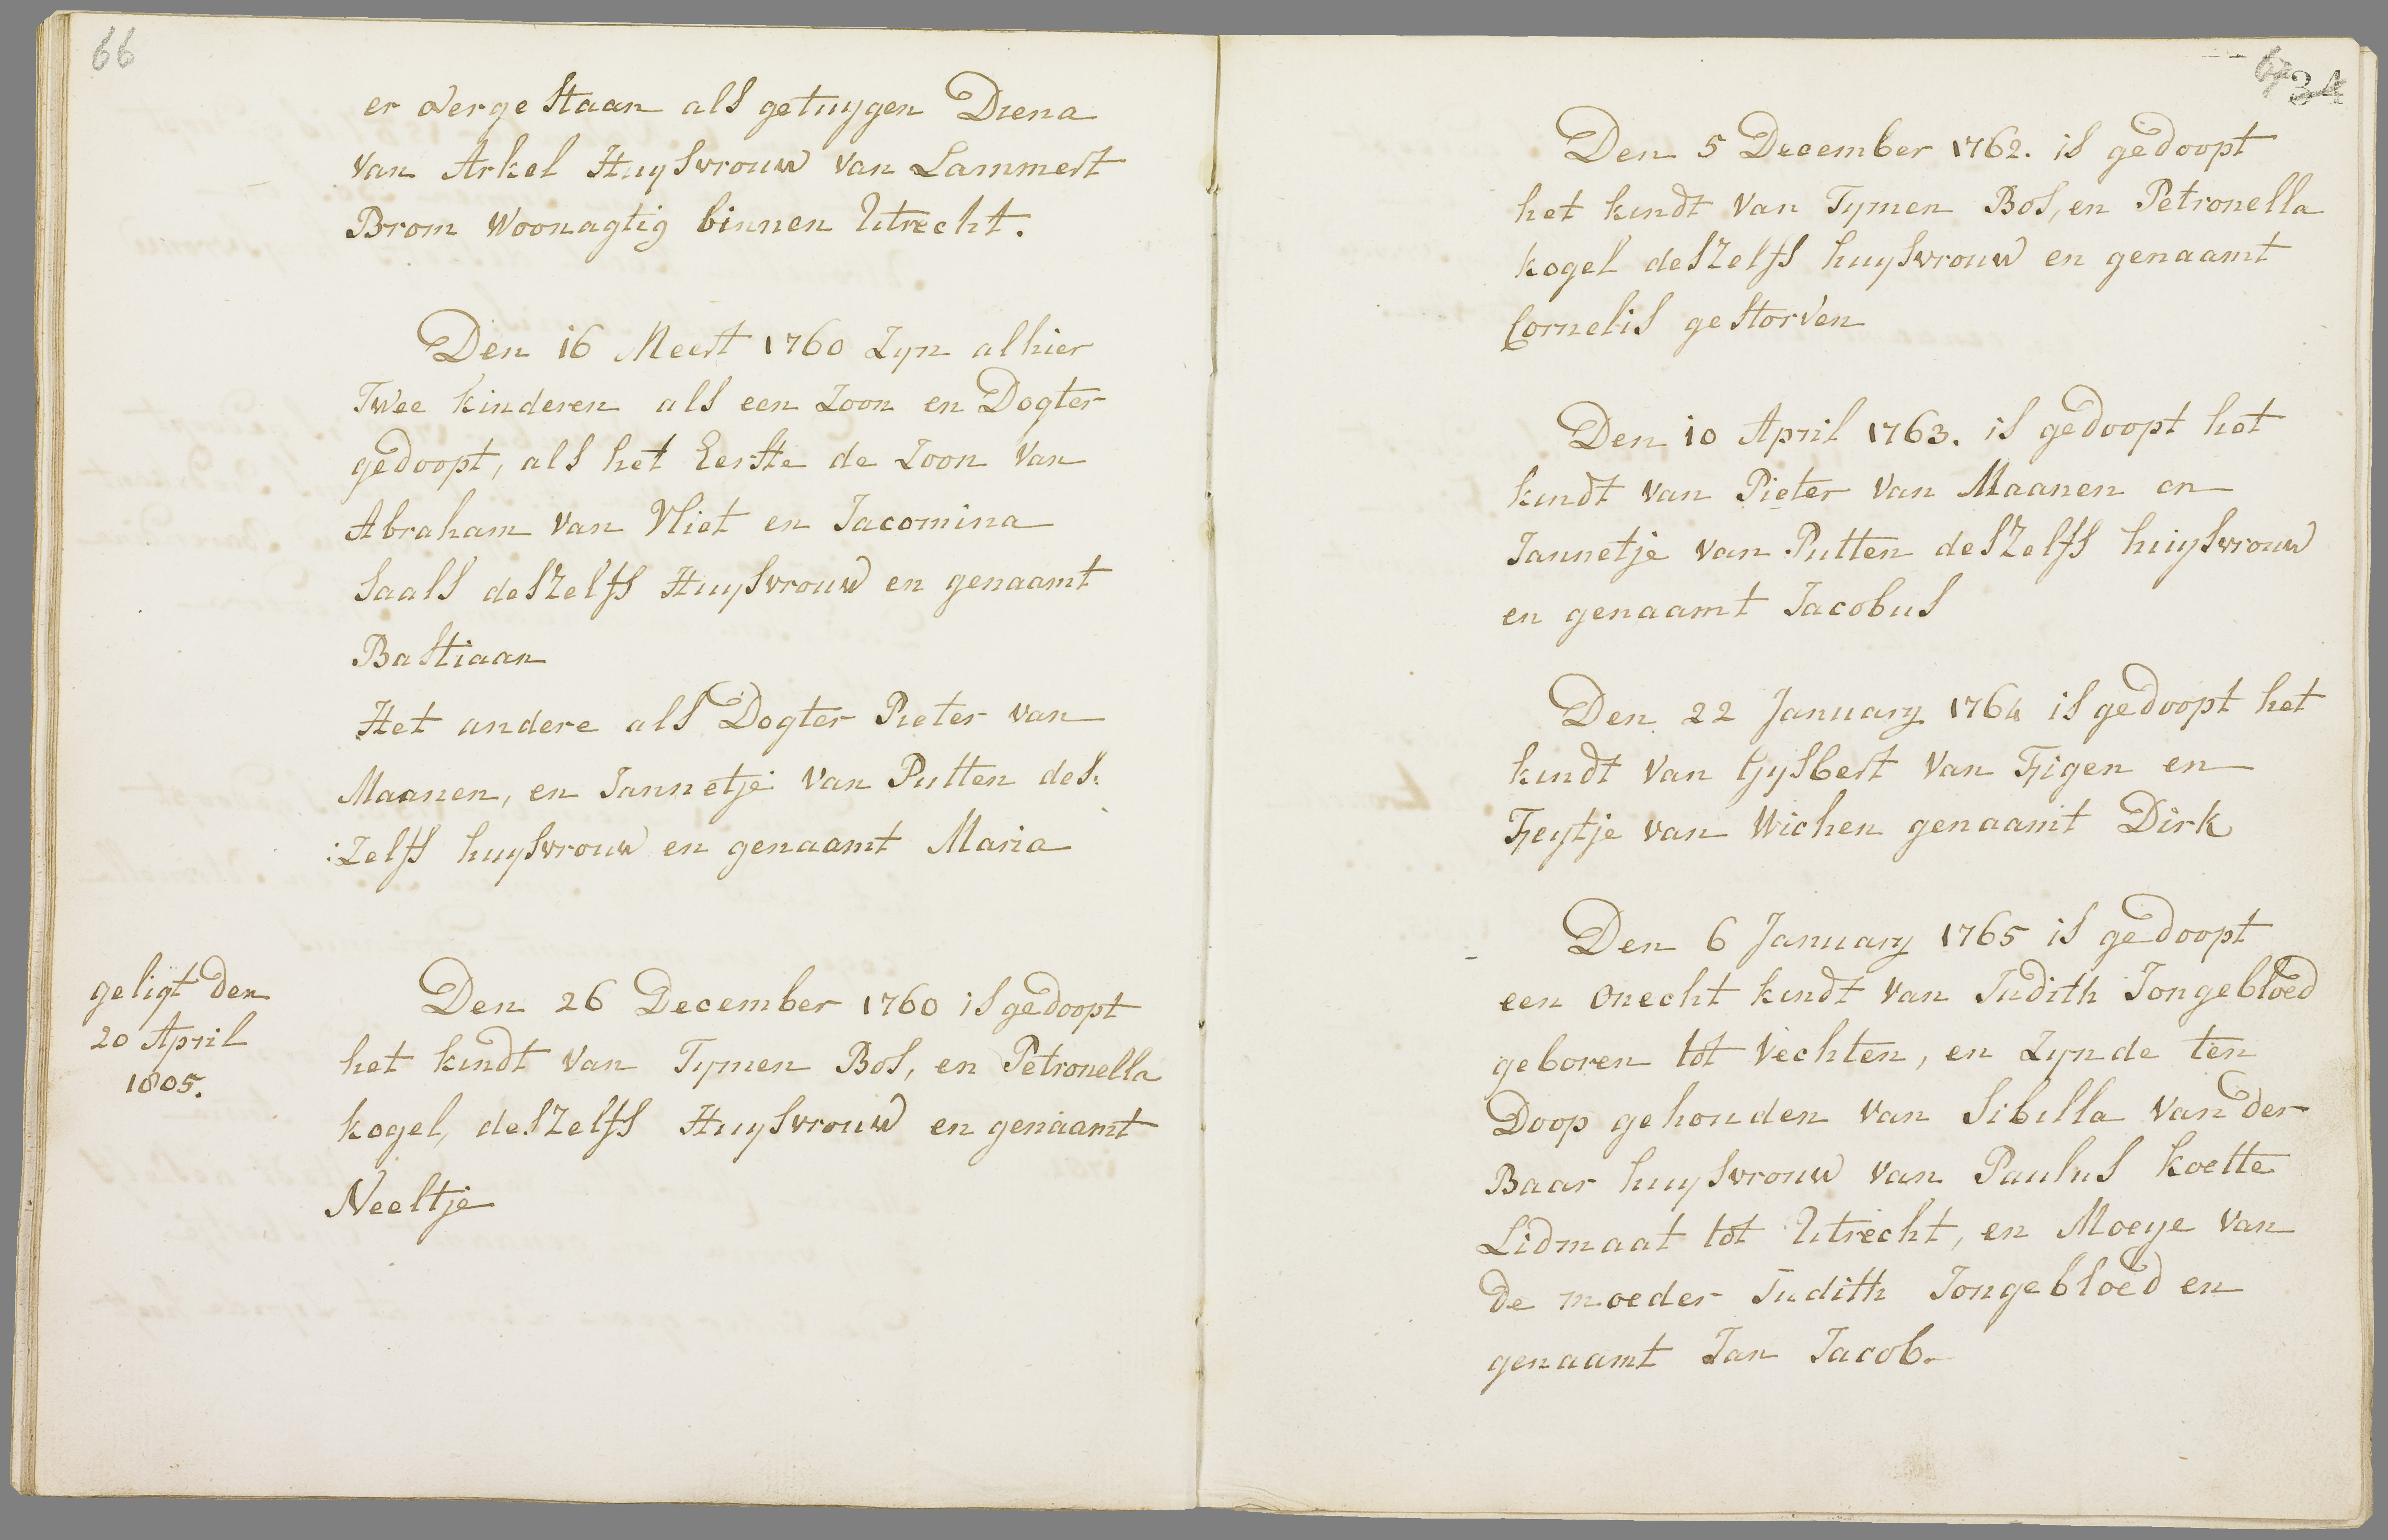 66
er overgestaan als getuygen Diena
van Arkel Huysvrouw van Lammert
Brom Woonagtig binnen Utrecht.
Den 16 Meert 1760 Zyn alhier
Twee kinderen als een Zoon en Dogter
gedoopt, als het Eerste de Zoon van
Abraham van Vliet en Jacomina
Saals deszelfs Huysvrouw en genaamt
Bastiaan
Het andere als Dogter Pieter van
Maanen, en Jannetje van Putten des:
:Zelfs huysvrouw en genaamt Maria
geligt den
20 April
1805.
Den 26 December 1760 is gedoopt
het kindt van Tymen Bos, en Petronella
kogel, deszelfs Huysvrouw en genaamt
Neeltje
34
Den 5 December 1762. is gedoopt
het kindt van Tymen Bos, en Petronella
kogel deszelfs huysvrouw en genaamt
Cornelis gestorven
Den 10 April 1763. is gedoopt het
kindt van Pieter van Maanen en
Jannetje van Putten deszelfs huysvrouw
en genaamt Jacobus
Den 22 January 1764 is gedoopt het
kindt van Gysbert van en
van Wichen genaamt Dirk
Den 6 January 1765 is gedoopt
een onecht kindt van Judith Jongebloed
geboren tot Vechten, en Zynde ten
Doop gehouden van Sibilla van der
Baar huysvrouw van Paulus koette
Lidmaat tot Utrecht, en Moeye van
de moeder Judith Jongebloed en
genaamt Jan Jacob.